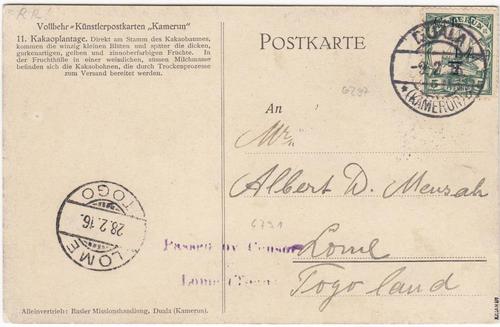 Vollbehr-Künstlerpostkarten „Kamerun"
11. Kakaoplantage. Direkt am Stamm des Kakaobaumes,
kommen die winzig kleinen Blüten und später die dicken,
gurkenartigen, gelben und zinnoberfarbigen Früchte. In
der Fruchthülle in einer weisslichen, süssen Milchmasse
befinden sich die Kakaobohnen, die durch Trockenprozesse
zum Versand bereitet werden.
POSTKARTE
DUALA
(KAMERUN)
An
Mr.
Albert D. Mensah
Lome
Togoland
6291
TOGO
28.2.16.
LOME
Passed by Censor
Lome
Alleinvertrieb: Basler Missionshandlung, Duala (Kamerun).